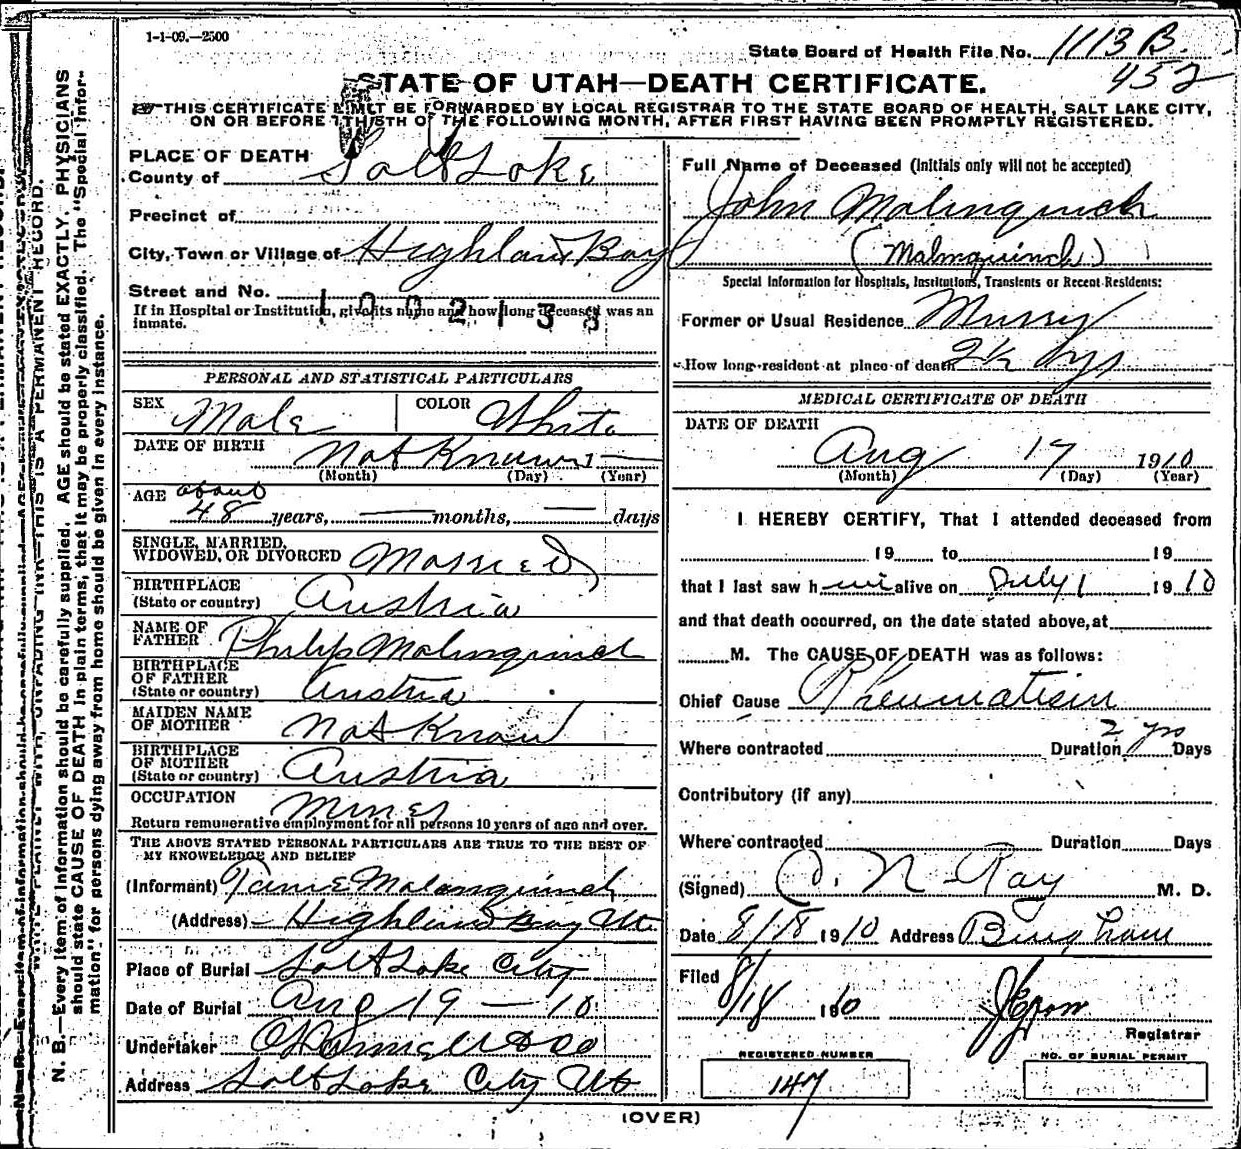 1-1-09.—2500
State Board of Health File No. 1113 B.
452
STATE OF UTAH—DEATH CERTIFICATE.
THIS CERTIFICATE MUST BE FORWARDED BY LOCAL REGISTRAR TO THE STATE BOARD OF HEALTH, SALT LAKE CITY,
ON OR BEFORE THE 5TH OF THE FOLLOWING MONTH, AFTER FIRST HAVING BEEN PROMPTLY REGISTERED.
PLACE OF DEATH
County of Salt Lake
Precinct of
City, Town or Village of Highland Boy
Street and No.
1002133
If in Hospital or Institution, give its name and how long deceased was an
inmate.
PERSONAL AND STATISTICAL PARTICULARS
SEX Male COLOR White
DATE OF BIRTH Not Known —
(Month) (Day) (Year)
AGE about
48 years, — months, — days
SINGLE, MARRIED,
WIDOWED, OR DIVORCED Married
BIRTHPLACE
(State or country) Austria
NAME OF
FATHER Philip Malinquich
BIRTHPLACE
OF FATHER
(State or country) Austria
MAIDEN NAME
OF MOTHER Not Know
BIRTHPLACE
OF MOTHER
(State or country) Austria
OCCUPATION Miner
Return remunerative employment for all persons 10 years of age and over.
THE ABOVE STATED PERSONAL PARTICULARS ARE TRUE TO THE BEST OF
MY KNOWELEDGE AND BELIEF
(Informant) Malanquinch
(Address) Highland Boy Ut.
Place of Burial Salt Lake City
Date of Burial Aug 19 — 10
Undertaker
Address Salt Lake City Ut
Full Name of Deceased (Initials only will not be accepted)
John Malinquich
(Malmquinch)
Special Information for Hospitals, Institutions, Transients or Recent Residents:
Former or Usual Residence Murry
How long resident at place of death 2½ dys
MEDICAL CERTIFICATE OF DEATH
DATE OF DEATH
Aug 17 1910
(Month) (Day) (Year)
I HEREBY CERTIFY, That I attended deceased from
19 to 19
that I last saw him alive on July 1 1910
and that death occurred, on the date stated above, at
M. The CAUSE OF DEATH was as follows:
Chief Cause Rheumatism
Where contracted Duration 2 yrs Days
Contributory (if any)
Where contracted Duration Days
(Signed) N Ray M. D.
Date 8/18 1910 Address Bingham
Filed
8/18 1910
Registrar
REGISTERED NUMBER
147
NO. OF BURIAL PERMIT
(OVER)
N. B.—Every item of information should be carefully supplied. AGE should be stated EXACTLY. PHYSICIANS
should state CAUSE OF DEATH in plain terms, that it may be properly classified. The "Special Infor-
mation" for persons dying away from home should be given in every instance.
WRITE PLAINLY WITH UNFADING INK—THIS IS A PERMANENT RECORD.